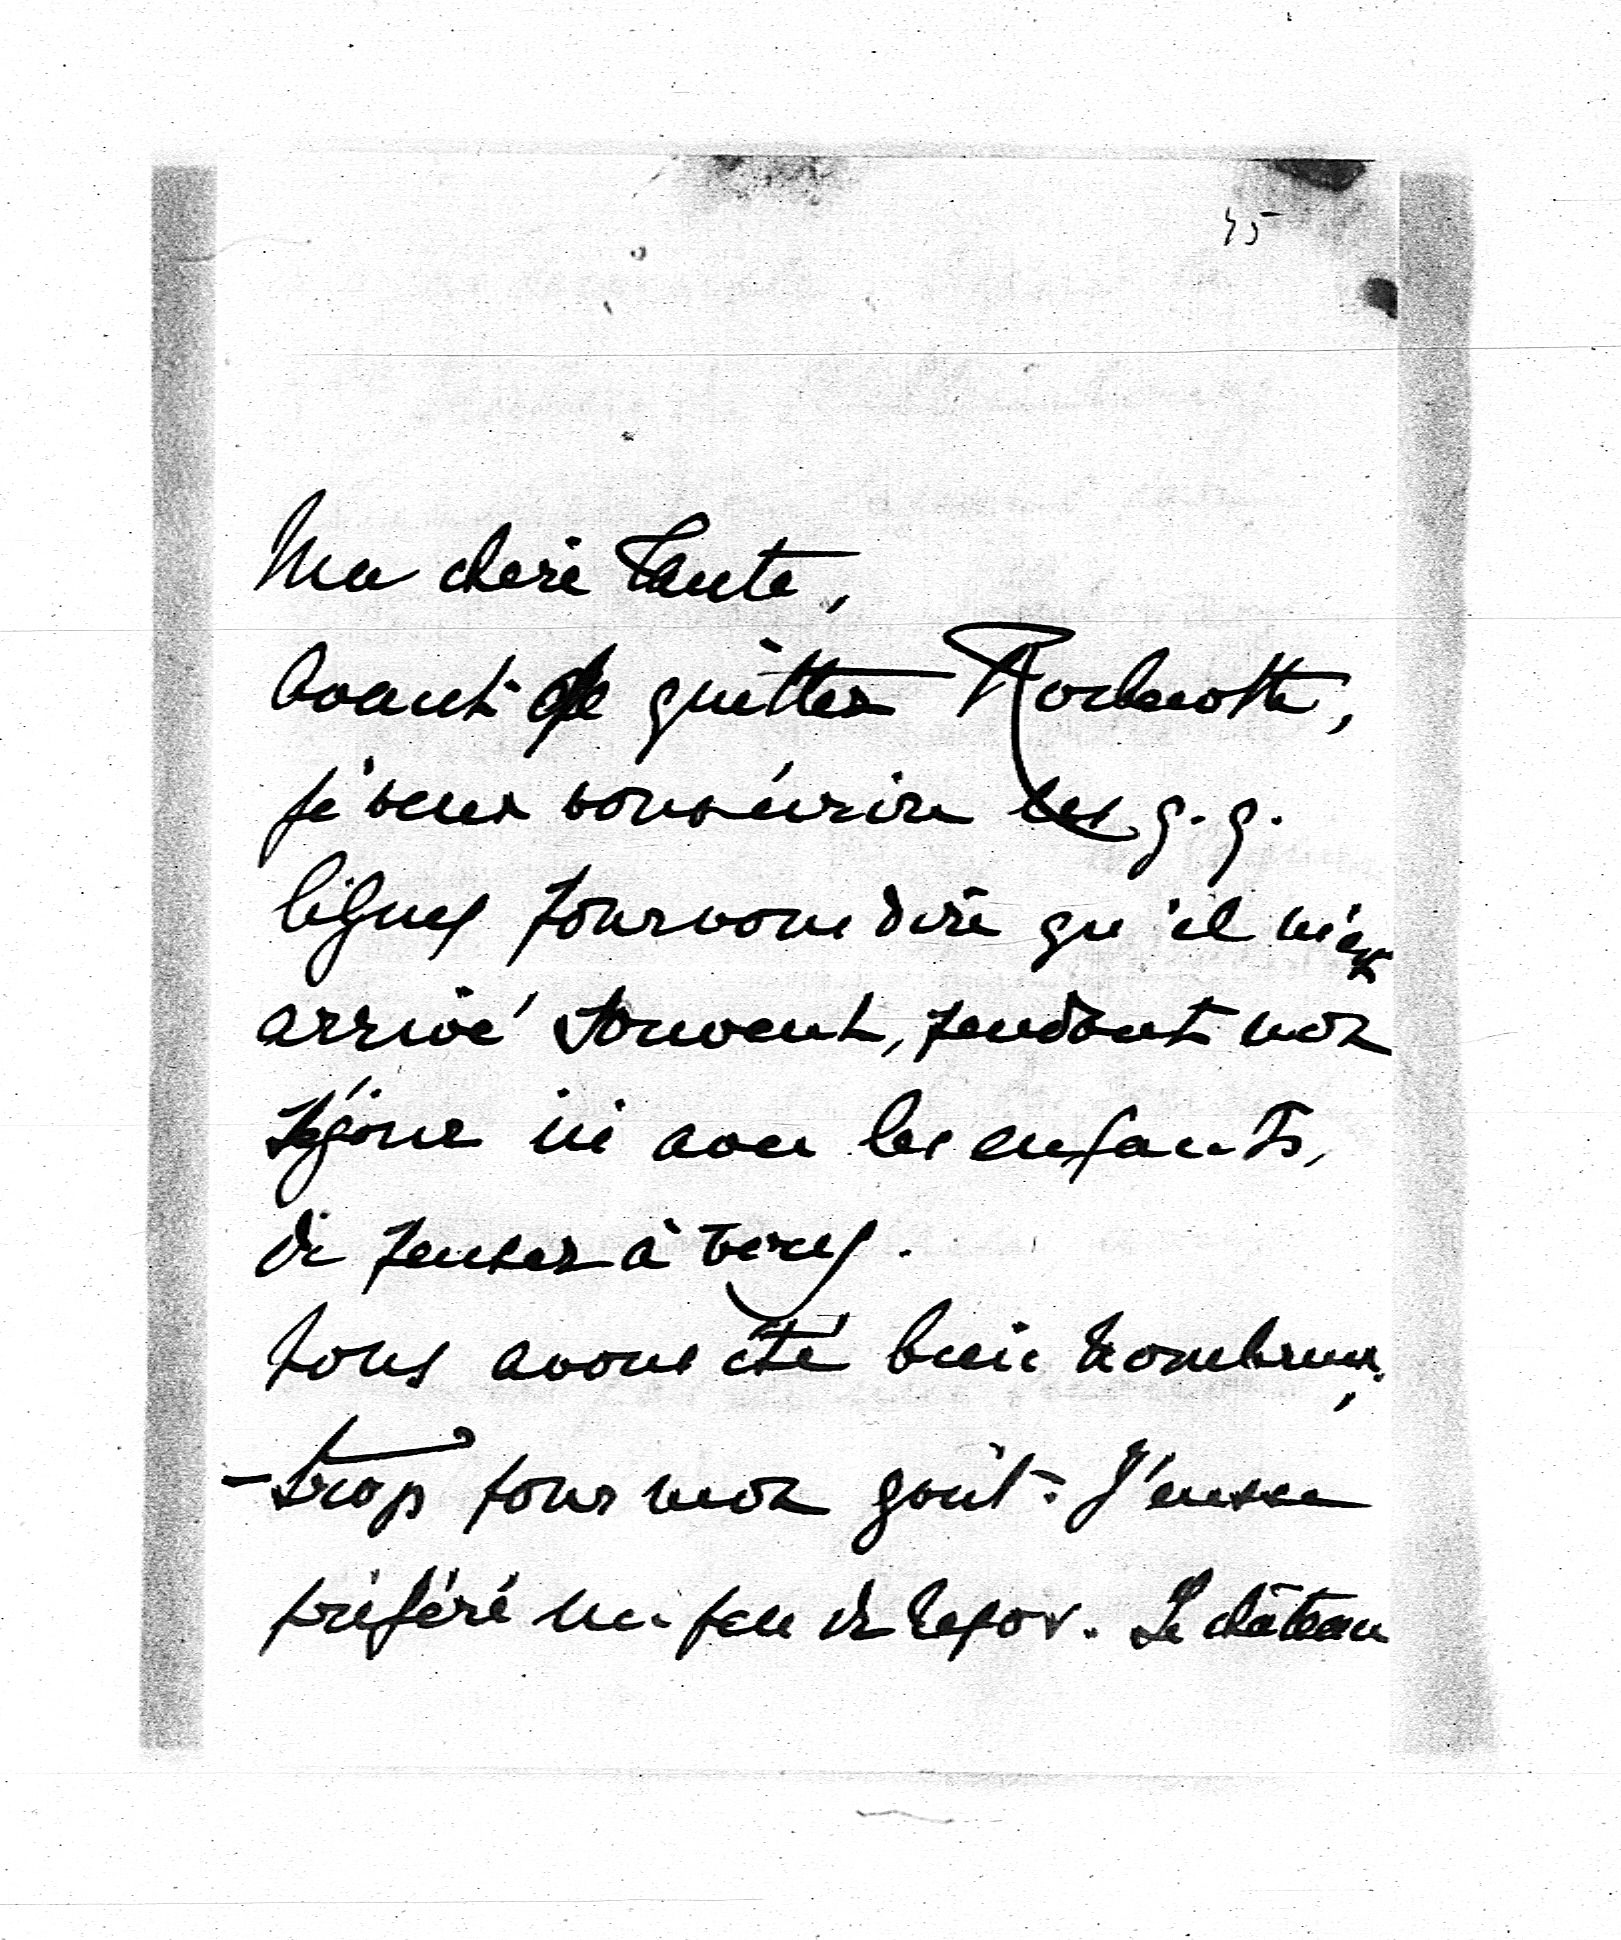 45
Ma chère Tante,
Avant de quitter
je veux vous écrire ces q.q.
lignes pour vous dire qu'il m'est
arrivé souvent, pendant mon
séjour ici avec les enfants,
de penser à vous.
Nous avons été bien nombreux,
- trop pour mon goût. J'eusse
préféré un peu de repos. Le château